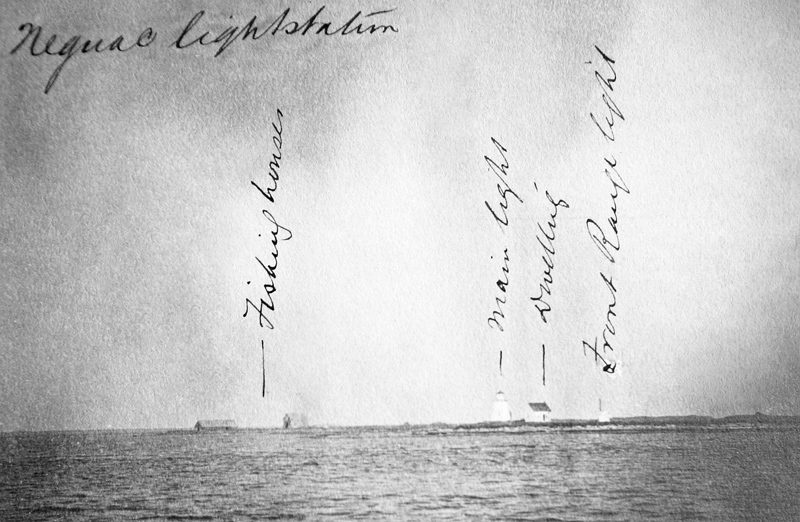 Neguac lightstation
— Fishing houses
— Main light
— Dwelling
Front Range light